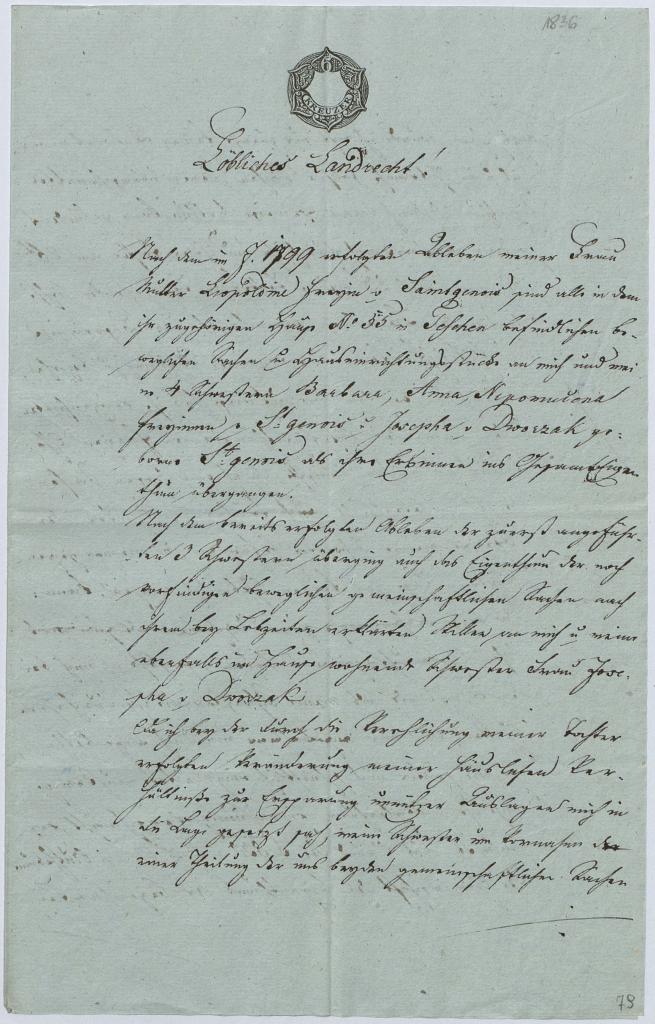 1836
6
KREUZER
Löbliches Landrecht!
Nach dem im J. 1799 erfolgten Ableben meiner Frau
Mutter Leopoldine Freyin v Saintgenois sind alle in dem
ihr zugehörigen Hause No 55 in Teschen befindlichen be-
weglichen Sachen u Hauseinrichtungsstücke an mich und mei
ne 4 Schwestern Barbara, Anna, Nepomucena
Freyinnen v St genois u Josepha v Dworzak ge-
borne St genois als ihre Erbinnen ins Gesammteigen
thum übergangen.
Nach dem bereits erfolgten Ableben der zuerst angeführ-
ten 3 Schwestern überging auch das Eigenthum der noch
vorfindigen beweglichen gemeinschaftlichen Sachen nach
ihrem bey Lebzeiten erklärten Willen an mich u meine
ebenfalls im Hause wohnende Schwester Frau Jose-
pha v Dworzak
Da ich bey der durch die Verehlichung meiner Tochter
erfolgten Veränderung meiner häuslichen Ver-
hältnisse zur Ersparung unnützer Auslagen mich in
die Lage gesetzt sah, meine Schwester um Vornahme der
einer Theilung der uns beyden gemeinschaftlichen Sachen
79